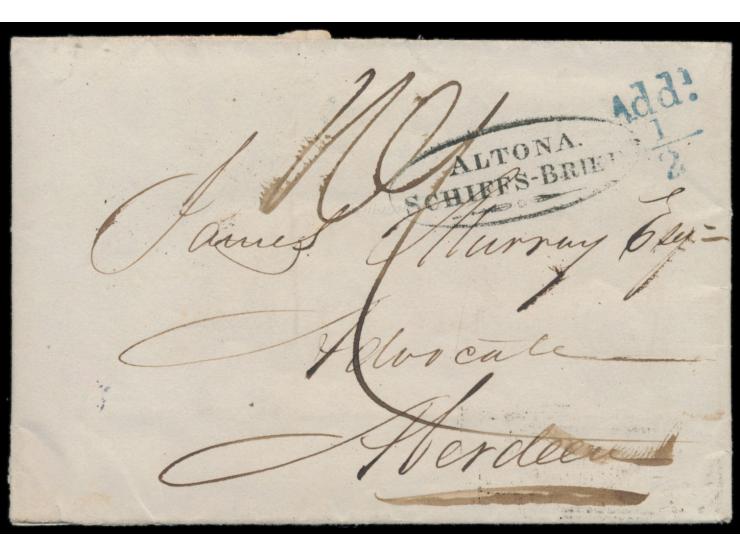 Add:
1/2
ALTONA.
SCHIFFS-BRIEF
James Murray Esqr
Advocate
Aberdeen